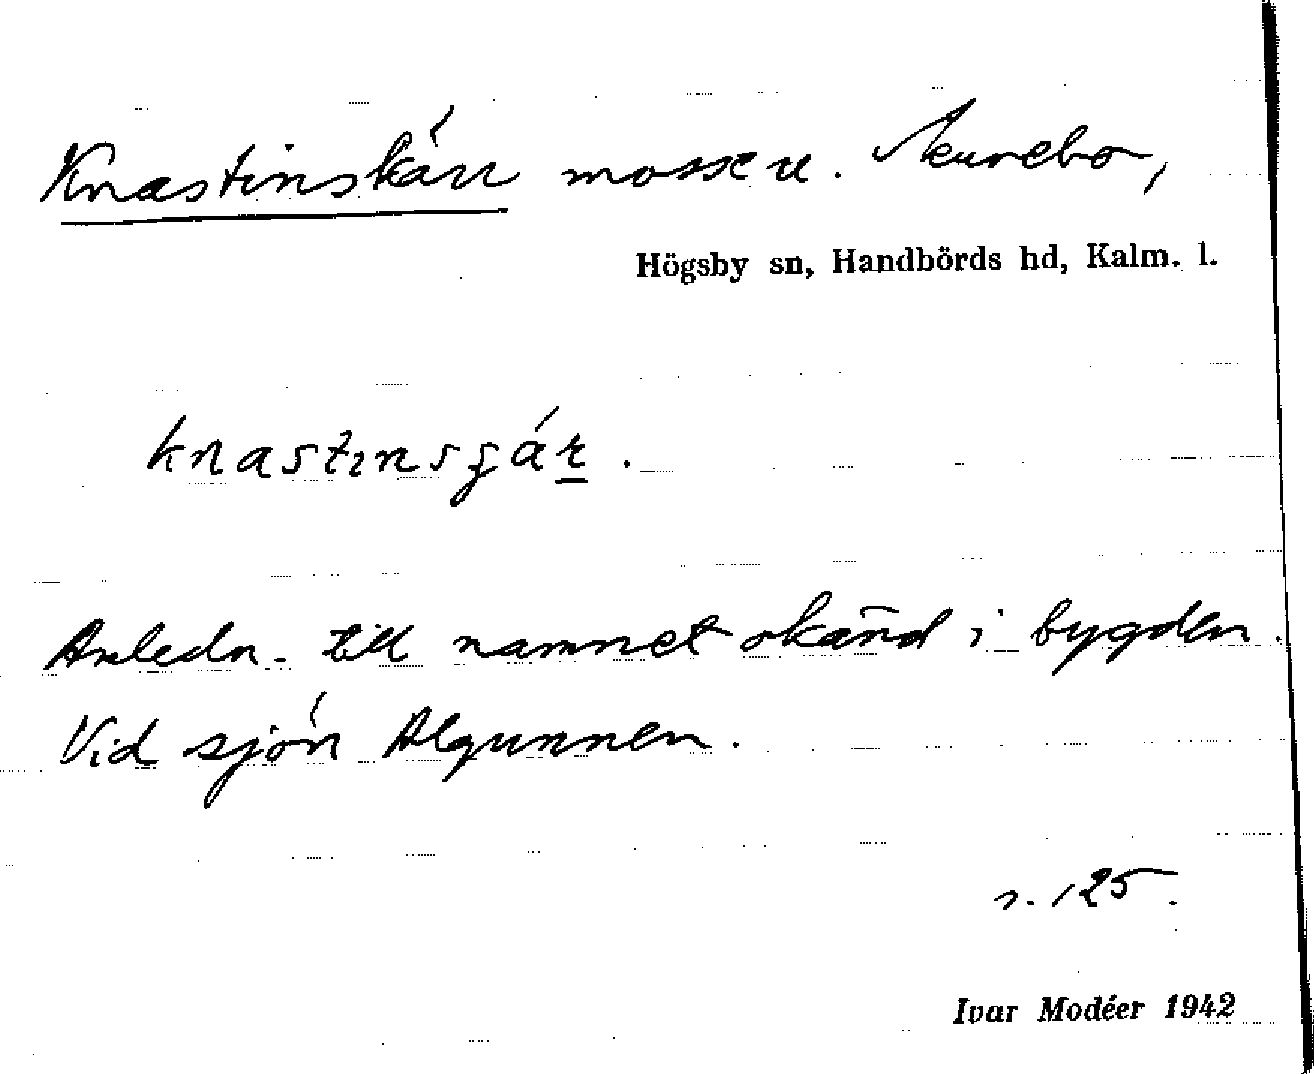 Knastinskärr mossen. Skurebo,
Högsby sn, Handbörds hd, Kalm. l.
knastinsȷár.
Anledn. till namnet okänd i bygden.
Vid sjön Algunnen.
s. 125.
Ivar Modéer 1942